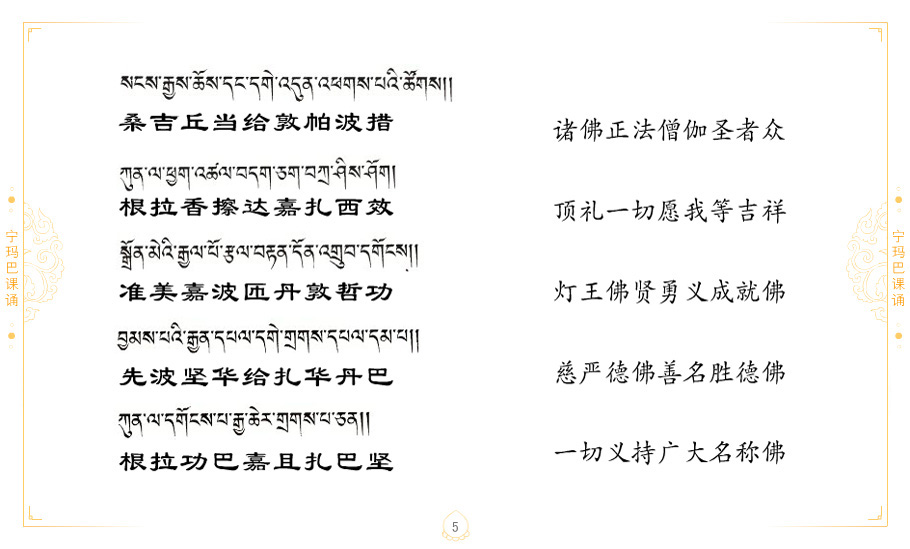 སངས་རྒྱས་ཆོས་དང་དགེ་འདུན་འཕགས་པའི་ཚོགས།།
桑吉丘当给敦帕波措
诸佛正法僧伽圣者众
ཀུན་ལ་ཕྱག་འཚལ་བདག་ཅག་བཀྲ་ཤིས་ཤོག།
根拉香擦达嘉扎西效
顶礼一切愿我等吉祥
སྒྲོན་མེའི་རྒྱལ་པོ་རྩལ་བརྟན་དོན་འགྲུབ་དགོངས།།
准美嘉波匝丹敦哲功
灯王佛贤勇义成就佛
བྱམས་པའི་རྒྱན་དཔལ་དགེ་གྲགས་དཔལ་དམ་པ།།
先波坚华给扎华丹巴
慈严德佛善名胜德佛
ཀུན་ལ་དགོངས་པ་རྒྱ་ཆེར་གྲགས་པ་ཅན།།
根拉功巴嘉且扎巴坚
一切义持广大名称佛
宁玛巴课诵
宁玛巴课诵
5